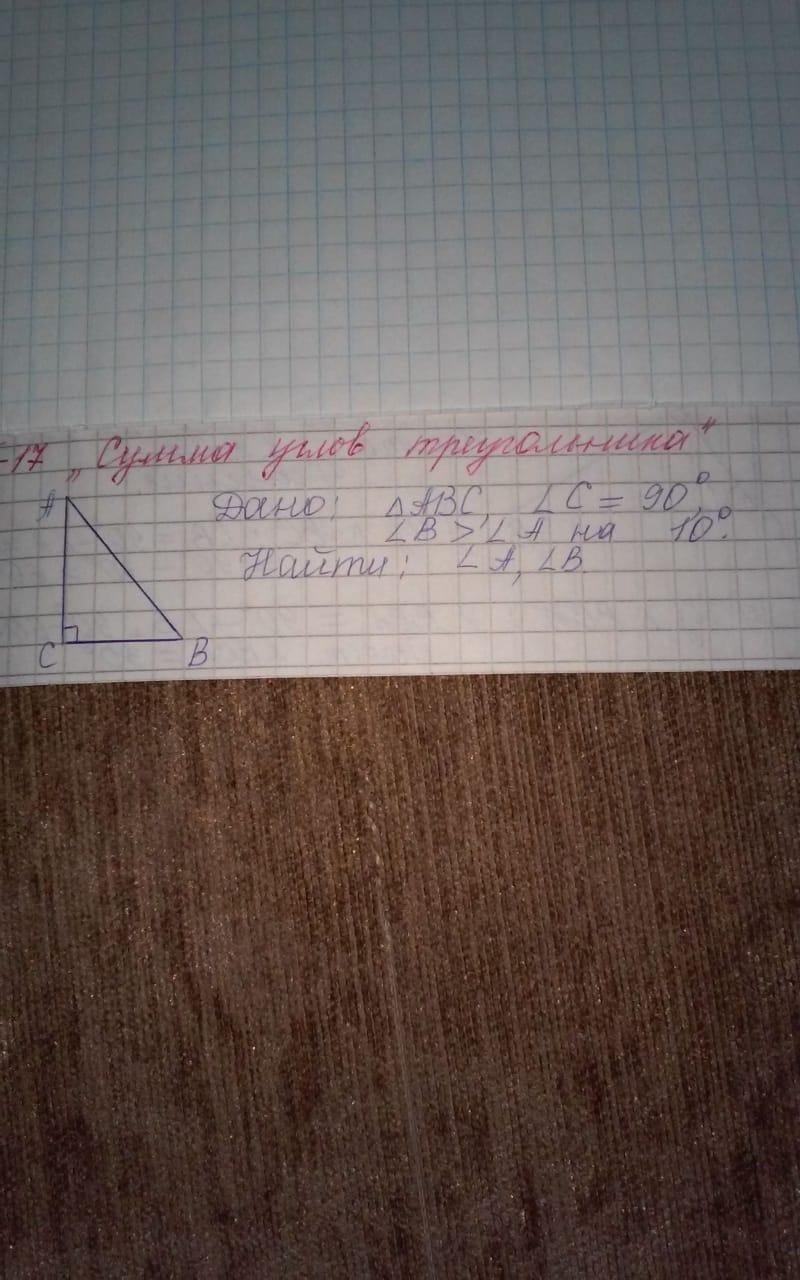 -17 „Сумма углов треугольника"
A
Дано: △ABC, ∠C = 90°,
∠B > ∠A на 10°.
Найти: ∠A, ∠B.
C B